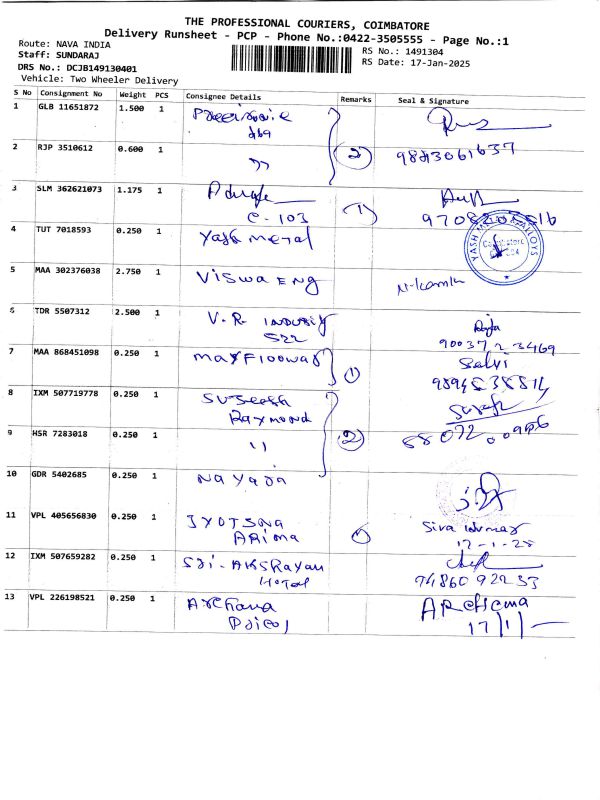 THE PROFESSIONAL COURIERS, COIMBATORE
Delivery Runsheet - PCP - Phone No.:0422-3505555 - Page No.:1
Route: NAVA INDIA
Staff: SUNDARAJ
DRS No.: DCJB149130401
Vehicle: Two Wheeler Delivery
RS No.: 1491304
RS Date: 17-Jan-2025
S No Consignment No Weight PCS Consignee Details Remarks Seal & Signature
1 GLB 11651872 1.500 1
2 RJP 3510612 0.600 1 " 2 9843061637
3 SLM 362621073 1.175 1 C-103 1
4 TUT 7018593 0.250 1 Yash metal
YASH METAL ALLOYS
5 MAA 302376038 2.750 1 Viswa ENG
6 TDR 5507312 2.500 1 V.R Industry
522
90037 23469
7 MAA 868451098 0.250 1 mayfloowar 1 Selvi
8 IXM 507719778 0.250 1 Sureesh
Raymond
9 HSR 7283018 0.250 1 " 2
10 GDR 5402685 0.250 1 Nayara
11 VPL 405656830 0.250 1 Jyotsna
Arima
Siva kumar
17-1-25
12 IXM 507659282 0.250 1 Sri-Akshayam
Hotel
94860 92233
13 VPL 226198521 0.250 1 Archana
17/1/